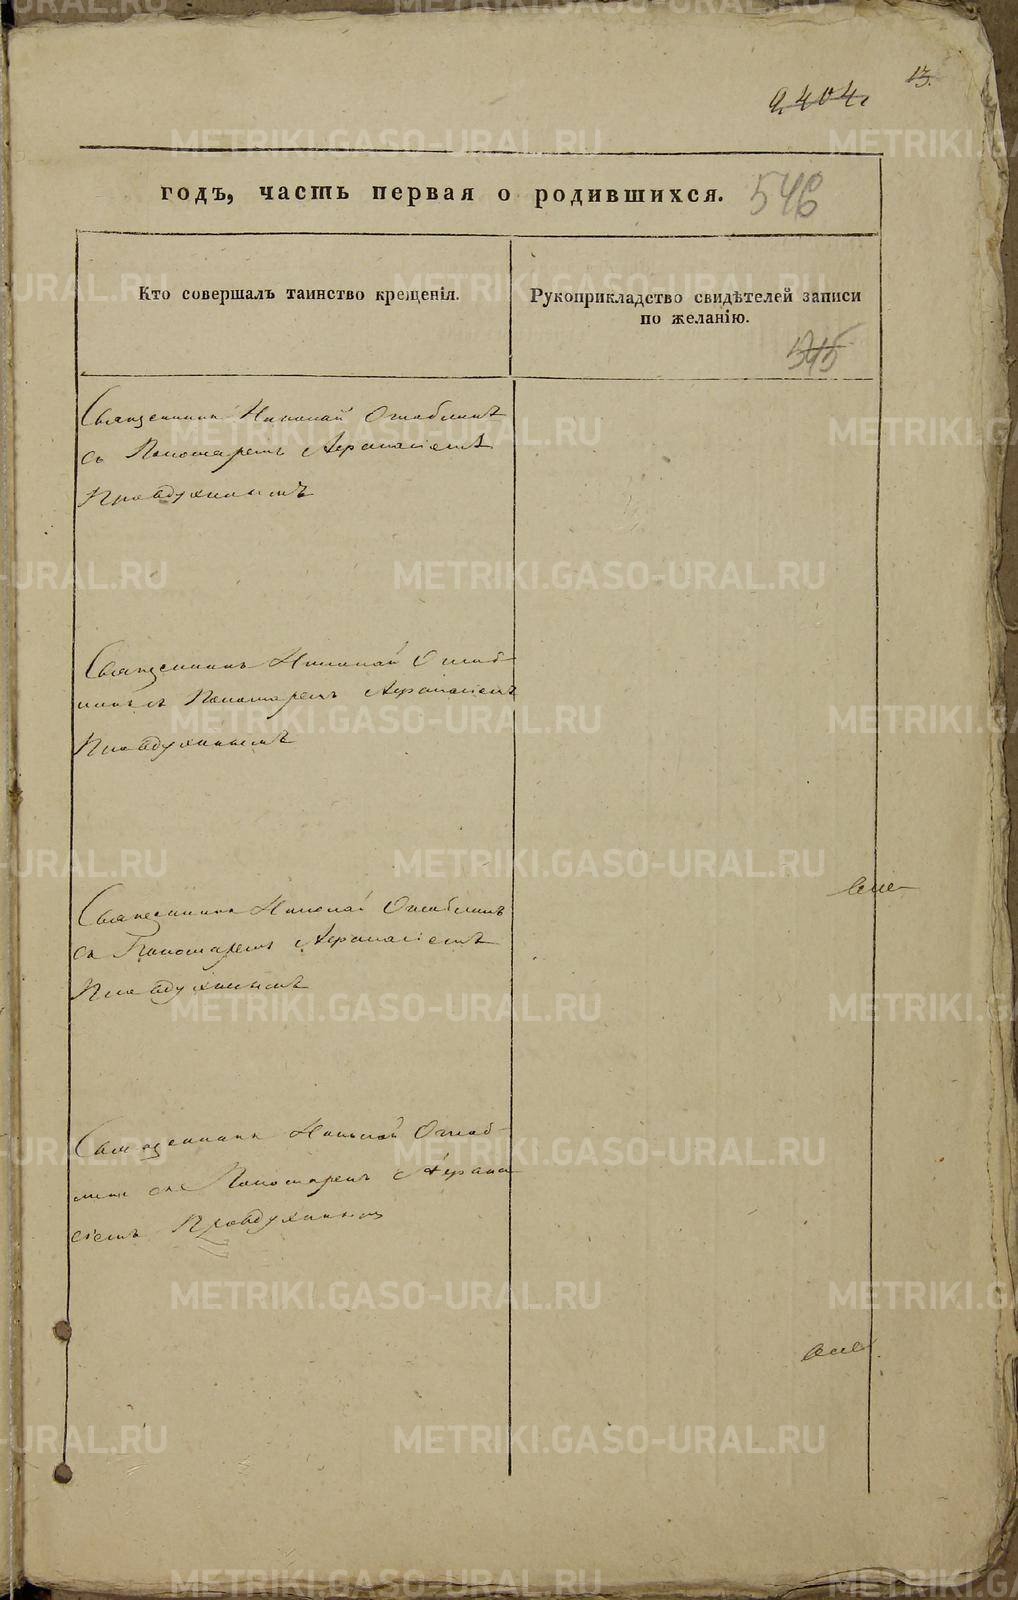 13.
2404.
годъ, часть первая о родившихся. 546
Кто совершалъ таинство крещенія.
Рукоприкладство свидѣтелей записи
по желанію.
545
Священникъ Николай Оглоблинъ
съ Пономаремъ Афанасіемъ
Правдухинымъ
Священникъ Николай Оглоб-
линъ съ Пономаремъ Афанасіемъ
Правдухинымъ
Священникъ Николай Оглоблинъ
съ Пономаремъ Афанасіемъ
Правдухинымъ
Священникъ Николай Оглоб-
линъ съ Пономаремъ Афана-
сіемъ Правдухинымъ
METRIKI.GASO-URAL.RU